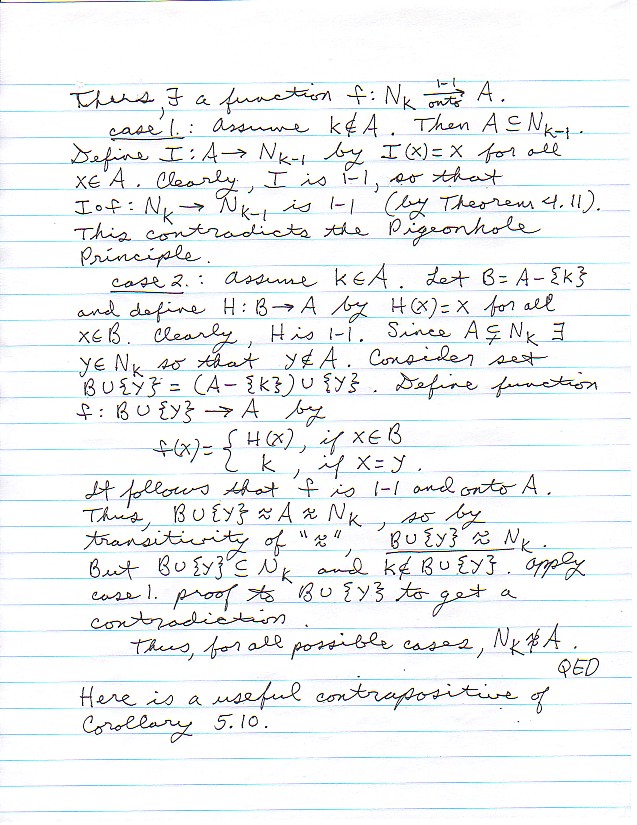 Thus, ∃ a function f: N_K 1-1→onto A.
case 1.: Assume k∉A. Then A⊆N_{K-1}.
Define I: A→ N_{K-1} by I(x)=x for all
x∈A. Clearly, I is 1-1, so that
I∘f: N_K → N_{K-1} is 1-1 (by Theorem 4.11).
This contradicts the Pigeonhole
Principle.
case 2.: Assume k∈A. Let B=A-{k}
and define H: B→A by H(x)=x for all
x∈B. Clearly, H is 1-1. Since A⊊N_K ∃
y∈N_K so that y∉A. Consider set
B∪{y} = (A-{k})∪{y}. Define function
f: B∪{y} → A by
f(x)= { H(x), if x∈B
k, if x=y.
It follows that f is 1-1 and onto A.
Thus, B∪{y} ≈ A ≈ N_K, so by
transitivity of "≈", B∪{y} ≈ N_K.
But B∪{y} ⊆ N_K and k∉B∪{y}. Apply
case 1. proof to B∪{y} to get a
contradiction.
Thus, for all possible cases, N_K≉A.
QED
Here is a useful contrapositive of
Corollary 5.10.